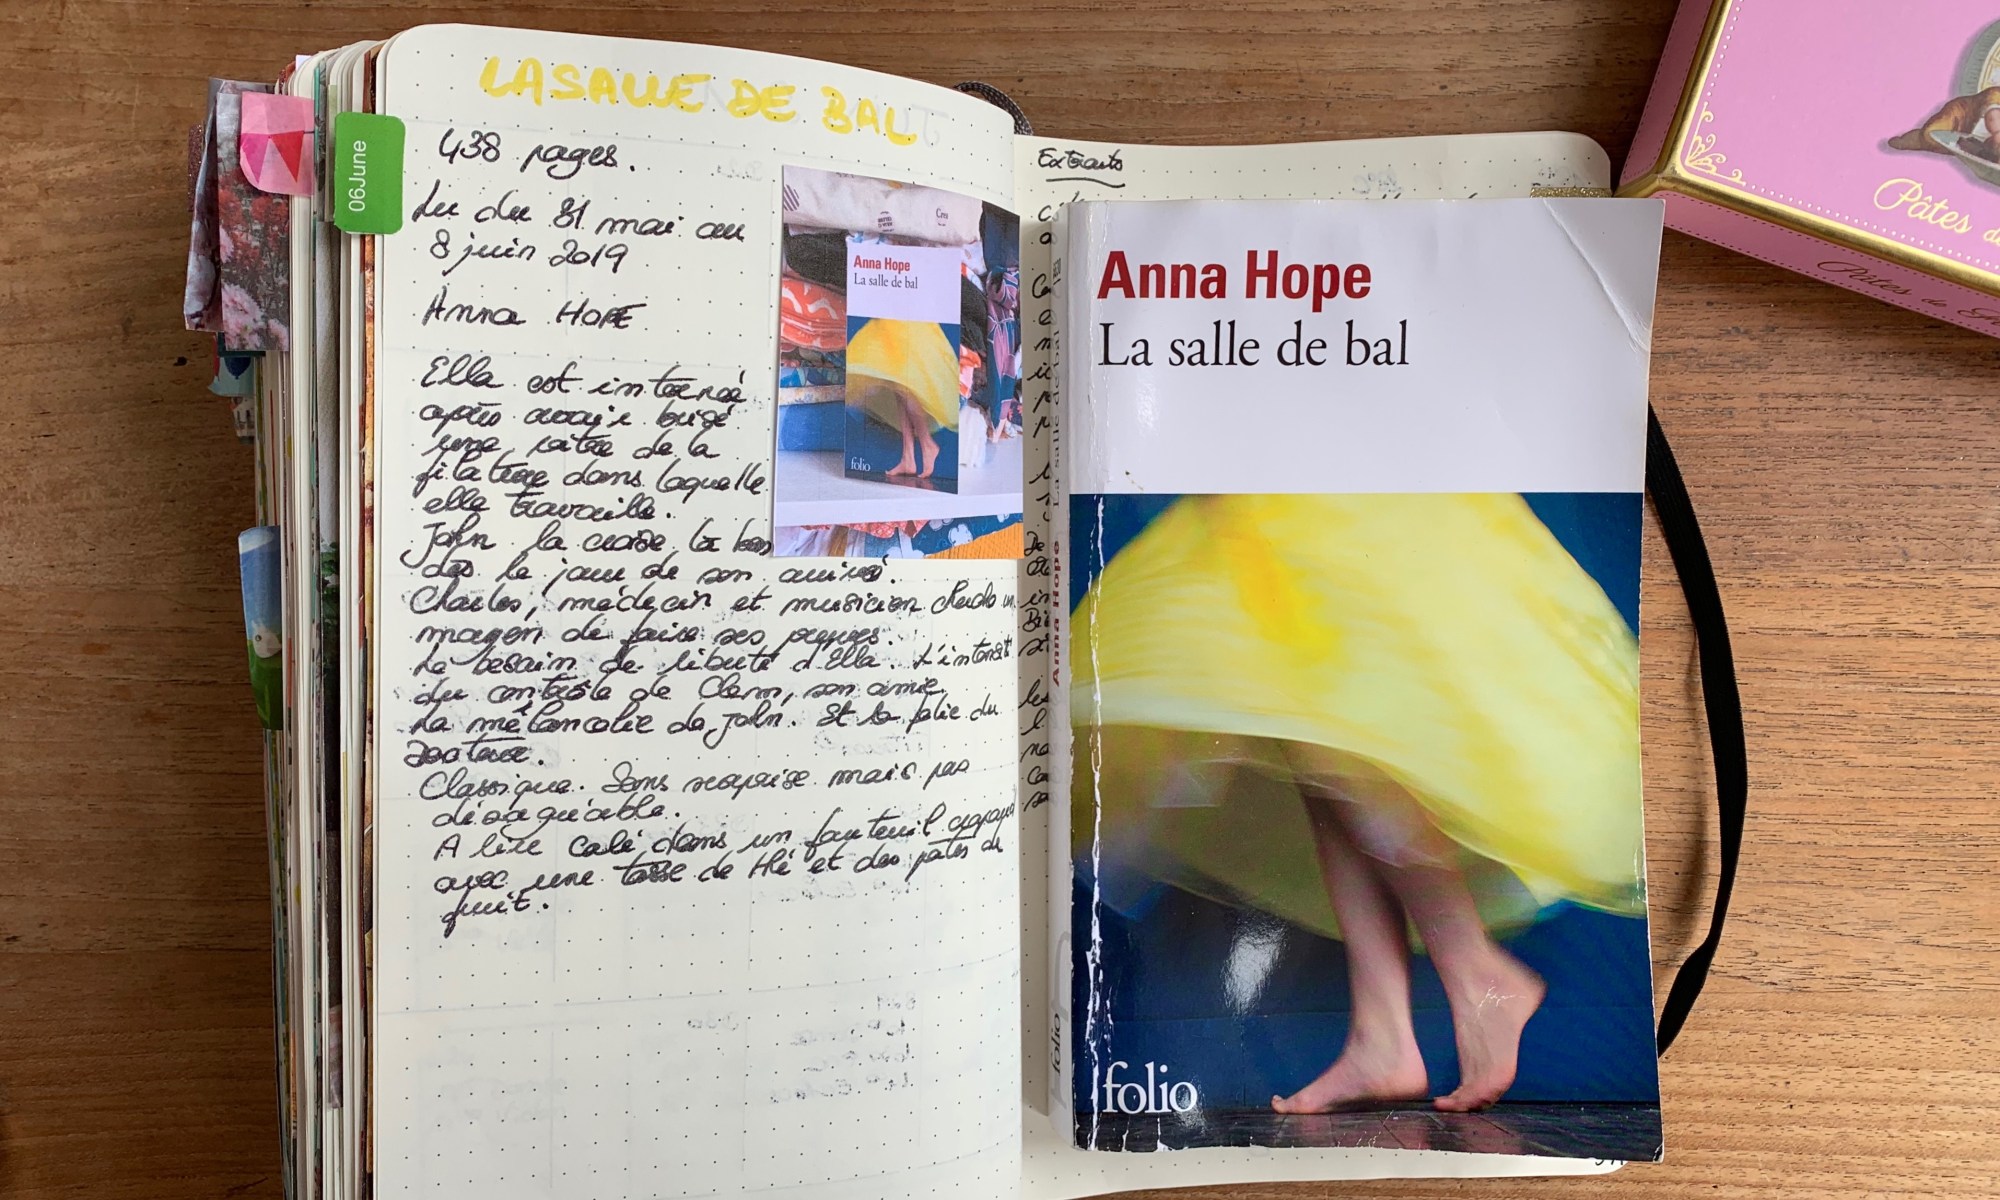 LA SALLE DE BAL
438 pages.
Lu du 31 mai au
8 juin 2019
Anna HOPE
Ella est internée
après avoir brisé
une vitre de la
filature dans laquelle
elle travaille.
John la croise là bas
dès le jour de son arrivée.
Charles, médecin et musicien cherche un
moyen de faire ses preuves.
Le besoin de liberté d'Ella. L'intensité
du contrôle de Clem, son amie
La mélancolie de John. Et la folie du
docteur.
Classique. Sans surprise mais pas
désagréable.
A lire calé dans un fauteuil
avec une tasse de thé et des pâtes de
fruit.
06June
Cres
Anna Hope
La salle de bal
folio
Extraits
Anna Hope
La salle de bal
folio
Anna Hope La salle de bal
folio
Pâtes de
Pâtes de